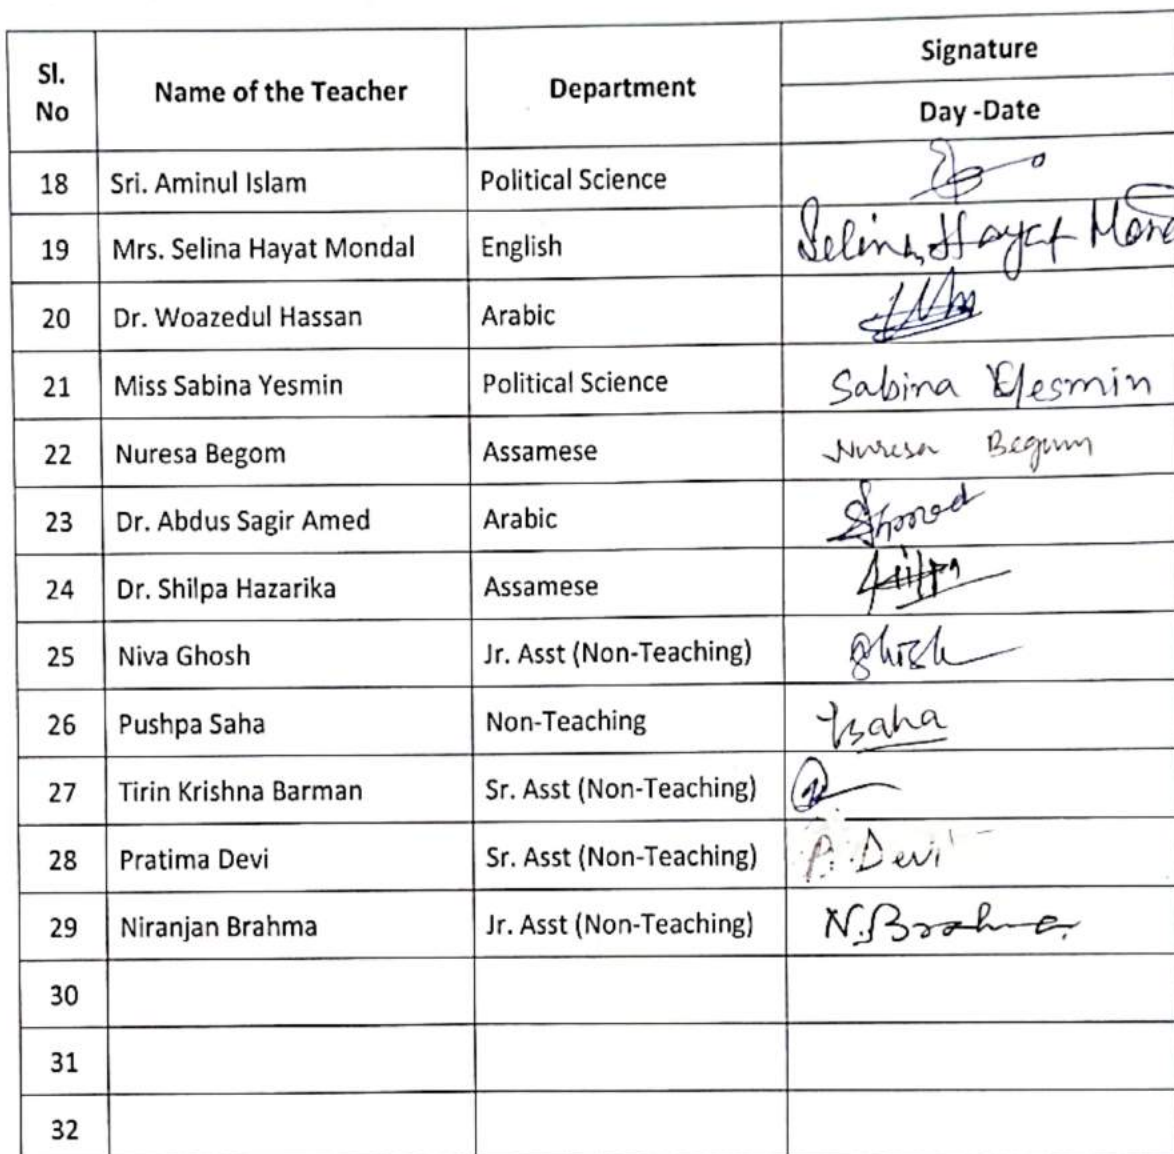 Sl. No Name of the Teacher Department Signature
Day -Date
18 Sri. Aminul Islam Political Science
19 Mrs. Selina Hayat Mondal English Selina Hayat Mond
20 Dr. Woazedul Hassan Arabic
21 Miss Sabina Yesmin Political Science Sabina Yesmin
22 Nuresa Begom Assamese Nuresa Begum
23 Dr. Abdus Sagir Amed Arabic
24 Dr. Shilpa Hazarika Assamese
25 Niva Ghosh Jr. Asst (Non-Teaching)
26 Pushpa Saha Non-Teaching
27 Tirin Krishna Barman Sr. Asst (Non-Teaching)
28 Pratima Devi Sr. Asst (Non-Teaching) P. Devi
29 Niranjan Brahma Jr. Asst (Non-Teaching) N. Brahma
30
31
32